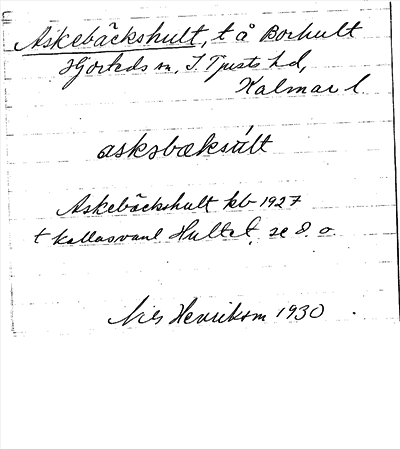 Askebäckshult, t å Borhult
Hjorteds sn, S Tjusts hd,
Kalmar l
askəbæksult
Askebäckshult kb 1927
t kallas vanl Hultet, se d o
Nils Henriksson 1930